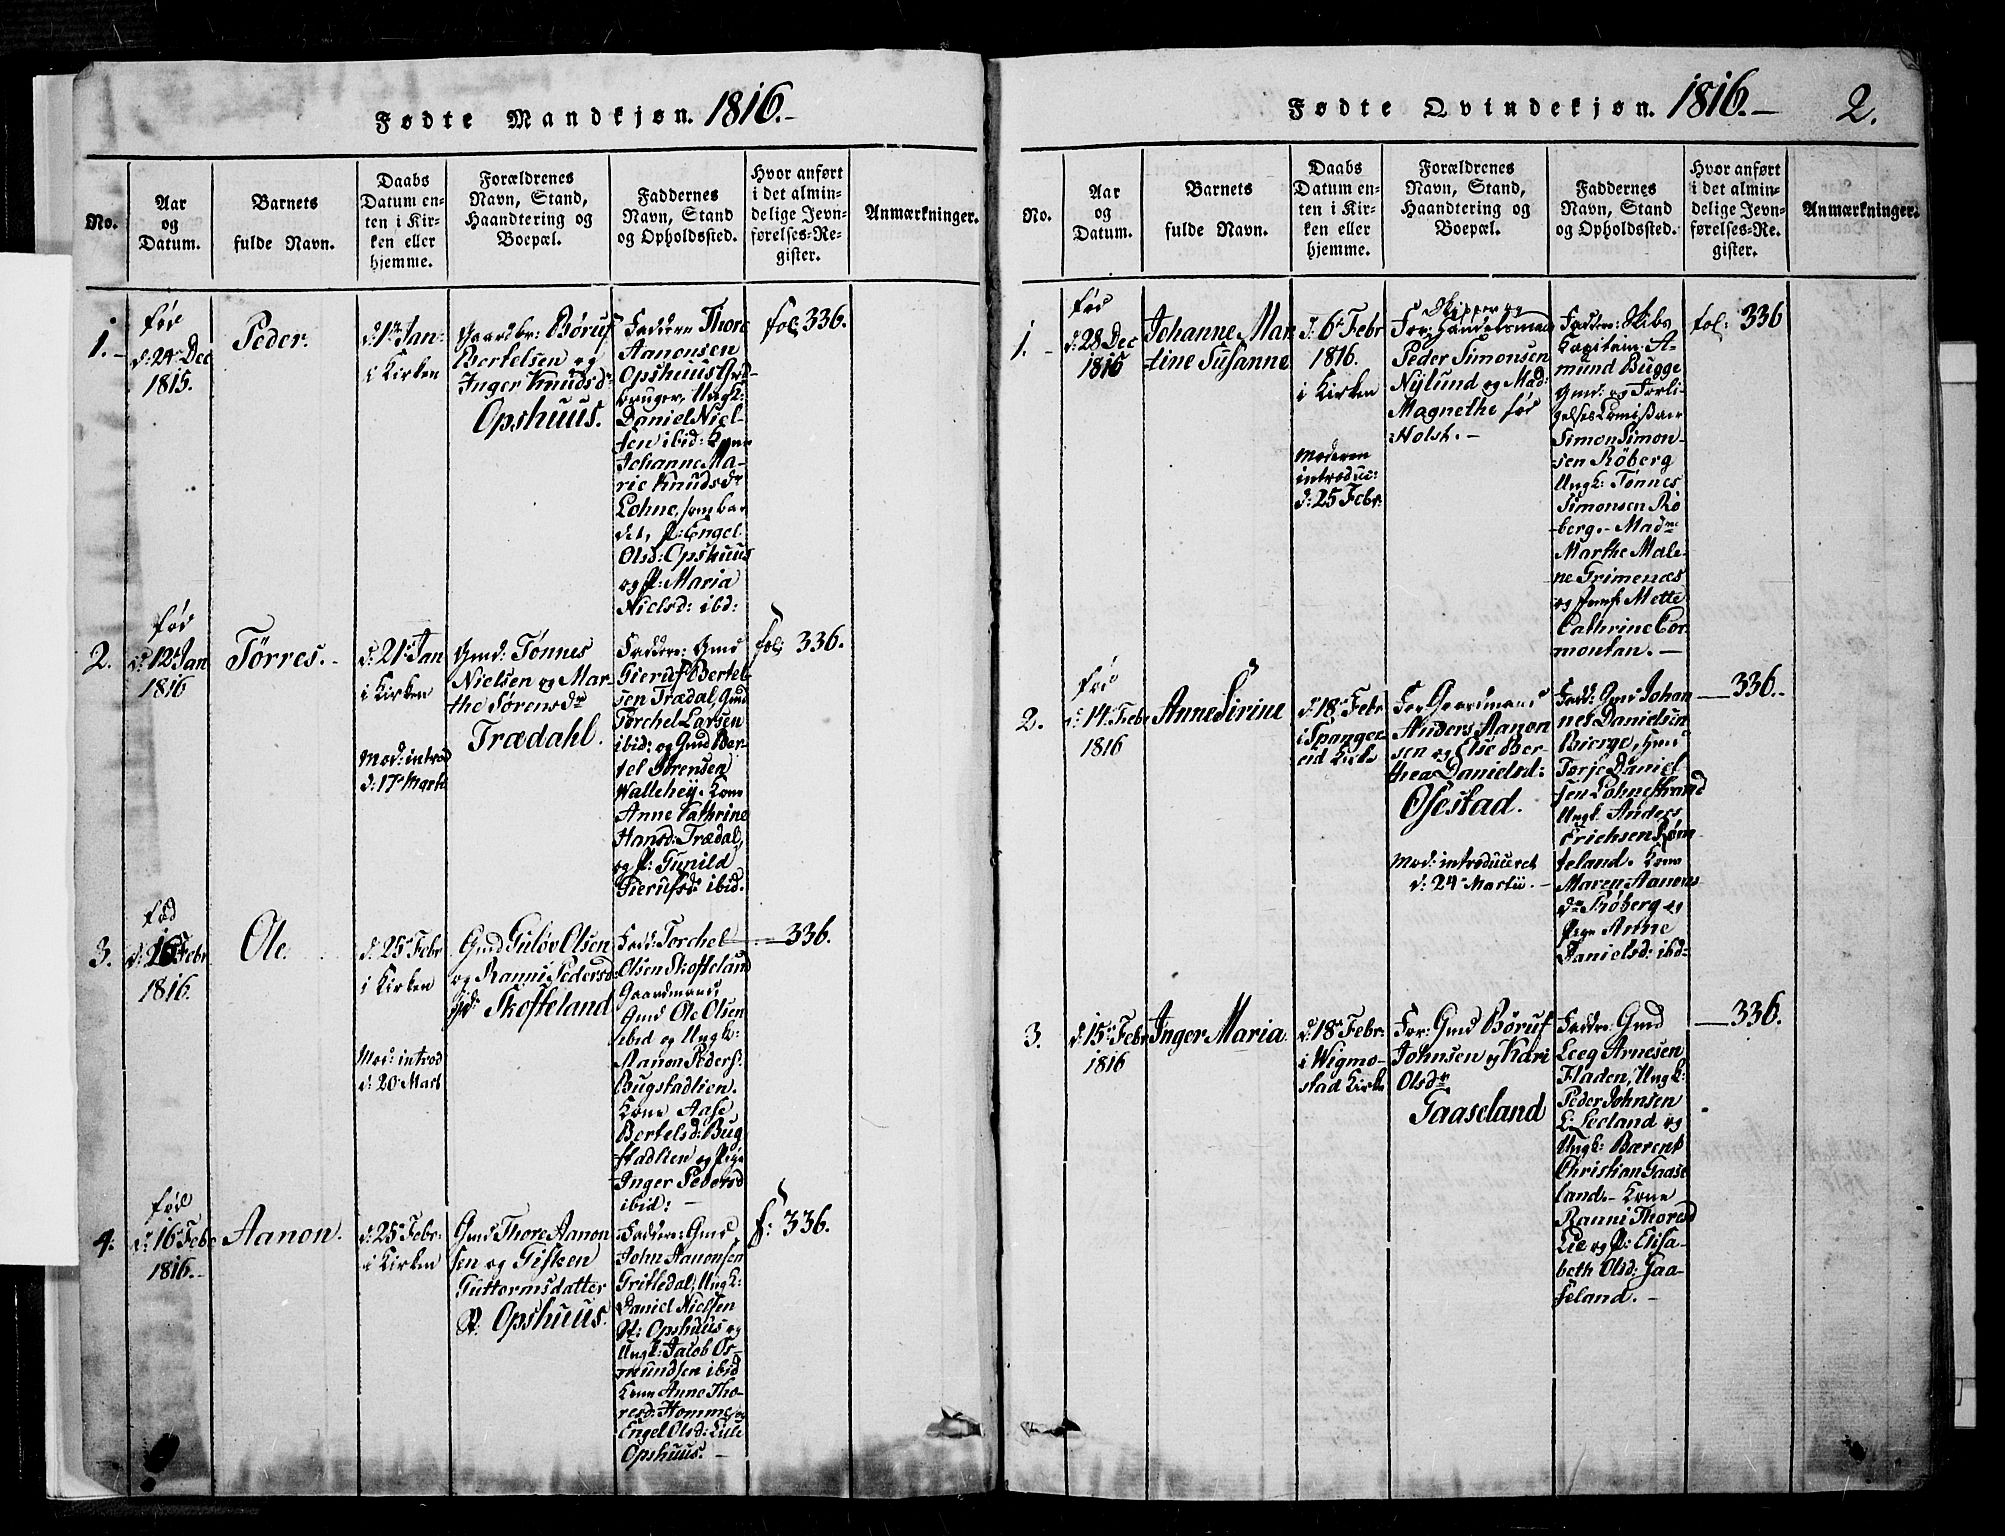 Fødte Mandkjøn. 1816.-
No.
Aar
og
Datum.
Barnets
fulde Navn.
Daabs
Datum en-
ten i Kir-
ken eller
hjemme.
Forældrenes
Navn, Stand,
Haandtering og
Boepæl.
Faddernes
Navn, Stand
og Opholdssted.
Hvor anført
i det almin-
delige Jevn-
førelses-Re-
gister.
Anmærkninger.
1.
fød
d: 24 Dec
1815.
Peder.
d 1 Jan
i Kirken
Gaardbr: Børuf
Bertelsen og
Inger Knudsd
Opshuus.
Faddere Thore
Aanonsen
Opshuus Grd
bruger, Ungk:
Daniel Niel-
sen ibid: Kone
Johanne Ma-
rie Knudsdr
Lohne, som bar
det, P: Engel
Olsd: Opshuus
og P: Maria
Nielsd: ibd:
fol: 336.
2.
fød
d: 12 Jan
1816
Tørres.
d: 21 Jan
i Kirken
Mod: introd
d: 17 Marti
Gmd: Tønnes
Nielsen og Mar-
the Sørensdr
Trædahl.
Faddere: Gmd
Gieruf Bertel-
sen Trædal, Gmd
Torchel Larsen
ibid: og Gmd Ber-
tel Sørensen
Walleheÿ. Kone
Anne Cathrine
Hansd: Trædal,
og P: Gunild
Gierufsd: ibid.
fol: 336.
3.
fød
d: 16 Febr
1816.
Ole.
d: 25 Febr
i Kirken
Mod: introd
d: 20 Mart
Gmd Guløv Olsen
og Ranni Pedersd:
Skofteland
Fadd: Torchel
Olsen Skofteland
Gaardmand,
Gmd Ole Olsen
ibid og Ungk:
Aanon Peders:
Bugstadlien.
Kone Aase
Bertelsd: Bug
stadlien og Pige
Inger Pedersd
ibid:
336.
4.
fød
d: 16 Febr
1816.
Aanon.
d: 25 Febr.
i Kirken
Gmd Thore Aanon
sen og Gisken
Guttormsdatter
St. Opshuus.
Faddere: Gmd
John Aanonsen
Gritledal, Ungk:
Daniel Nielsen
St: Opshuus og
Ungk: Jacob Os-
mundsen ibid
Kone Anne Tho-
resd: Homme, og
Engel Olsd: Lille
Opshuus.
f: 336.
Fødte Qvindekjøn. 1816.-
2.
No.
Aar
og
Datum.
Barnets
fulde Navn.
Daabs
Datum en-
ten i Kir-
ken eller
hjemme.
Forældrenes
Navn, Stand,
Haandtering og
Boepæl.
Faddernes
Navn, Stand
og Opholdssted.
Hvor anført
i det almin-
delige Jevn-
førelses-Re-
gister.
Anmærkninger.
1.
fød
d: 28 Dec
1815
Johanne Mar
tine Susanne
d: 6 Febr
1816.
i Kirken
Moderen
introduc:
d: 25 Febr.
Skipper og
For: Handelsmand
Peder Simonsen
Nÿlund og Mad:
Magnethe fød
Holst.
Faddere: Skibs
Kapitain A-
mund Bugge
Gmd: og Forli-
gelses Comissair
Simon Simon-
sen Røberg
Ungk: Tønnes
Simonsen Rø
berg. Madme
Marthe Male-
ne Grimenæs
og Jomf: Mette
Cathrine Cor-
montan.
fol: 336
2.
fød
d: 14 Febr
1816
Anne Sirine
d: 18 Febr
i Spange-
reid Kirke
For: Gaardmand
Anders Aanon
sen og Else Ber-
thea Danielsd:
Osestad.
Mod: introduceret
d: 24 Martii.
Fadd: Gmd Johan
nes Danielsen
Bierge, Gmd
Torje Daniel
sen Lohnestrand
Ungk. Anders
Erichsen Røm
teland. Kone
Maren Aanons
dr Røberg og
Pige Anne
Danielsd: ibd
336.
3.
d: 15 Febr
1816
Inger Maria
d: 18 Febr.
i Wigmo-
stad Kirke
For: Gmd Børuf
Johnsen og Kari
Olsdr
Gaaseland
Faddre: Gmd
Leeg Arnesen
Fladen, Ungk:
Peder Johnsen
Leeland og
Ungk: Bærent
Christian Gaase
land. Kone
Ranni Thoresd
Lie og P: Elisa-
beth Olsd: Gaa-
seland.
336.